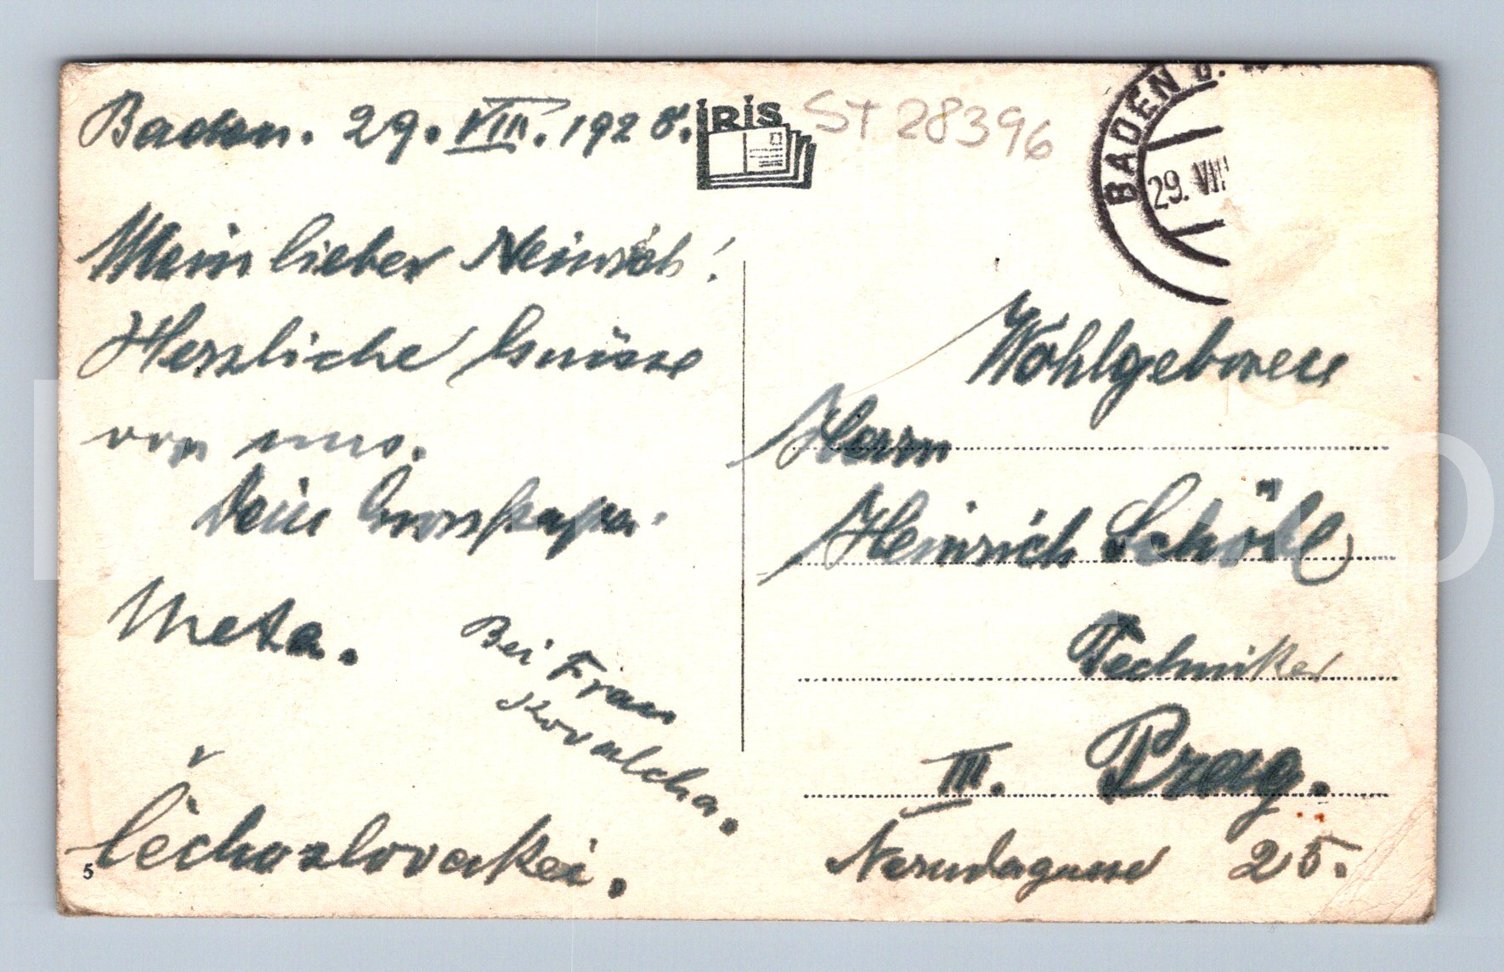 Baden. 29. VIII. 1928.
IRIS
ST 28396
BADEN b. WIEN
29. VIII
Mein lieber Heinrich!
Herzliche Grüsse
von uns.
Dein Grosspapa.
Meta.
Bei Frau
Kovalcha.
Čechoslovakei.
5
Wohlgeboren
Herrn
Heinrich Schöbl
Techniker
III. Prag.
Nerudagasse 25.